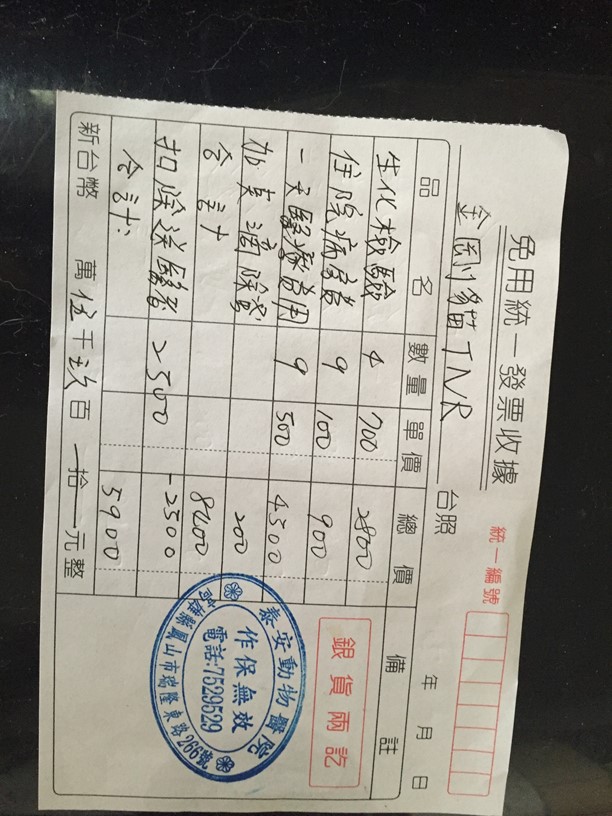 免用統一發票收據
統一編號
金剛貓TNR 台照 年 月 日
品名 數量 單價 總價 備註
生化檢驗 4 700 2800
住院病房 9 100 900
一天醫療費用 9 500 4500
加 滴除蚤 200
合計 8400
扣除送醫 2500 -2500
合計: 5900
新台幣 萬伍千玖百 拾 元整
銀貨兩訖
泰安動物醫院
作保無效
電話:7529529
高雄縣鳳山市瑞隆東路266號